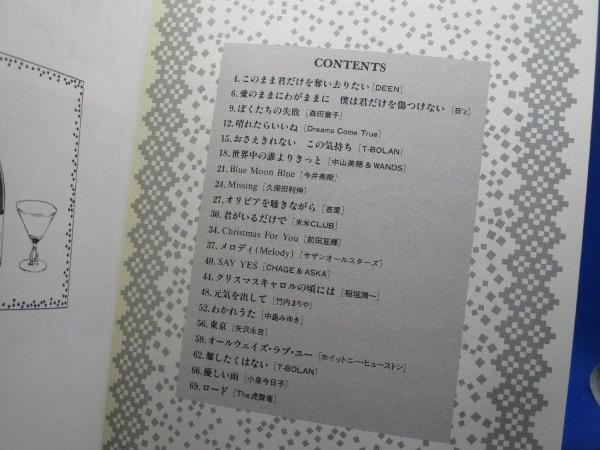 CONTENTS
4.このまま君だけを奪い去りたい[DEEN]
6.愛のままにわがままに 僕は君だけを傷つけない [B'z]
9.ぼくたちの失敗 [森田童子]
12.晴れたらいいね [Dreams Come True]
15.おさえきれない この気持ち [T-BOLAN]
18.世界中の誰よりきっと [中山美穂&WANDS]
21.Blue Moon Blue [今井美樹]
24.Missing [久保田利伸]
27.オリビアを聴きながら [杏里]
30.君がいるだけで [米米CLUB]
34.Christmas For You [前田亘輝]
37.メロディ(Melody) [サザンオールスターズ]
40.SAY YES [CHAGE&ASKA]
44.クリスマスキャロルの頃には [稲垣潤一]
48.元気を出して [竹内まりや]
52.わかれうた [中島みゆき]
56.東京 [矢沢永吉]
59.オールウェイズ・ラブ・ユー [ホイットニー・ヒューストン]
62.離したくはない [T-BOLAN]
66.優しい雨 [小泉今日子]
69.ロード [The虎舞竜]